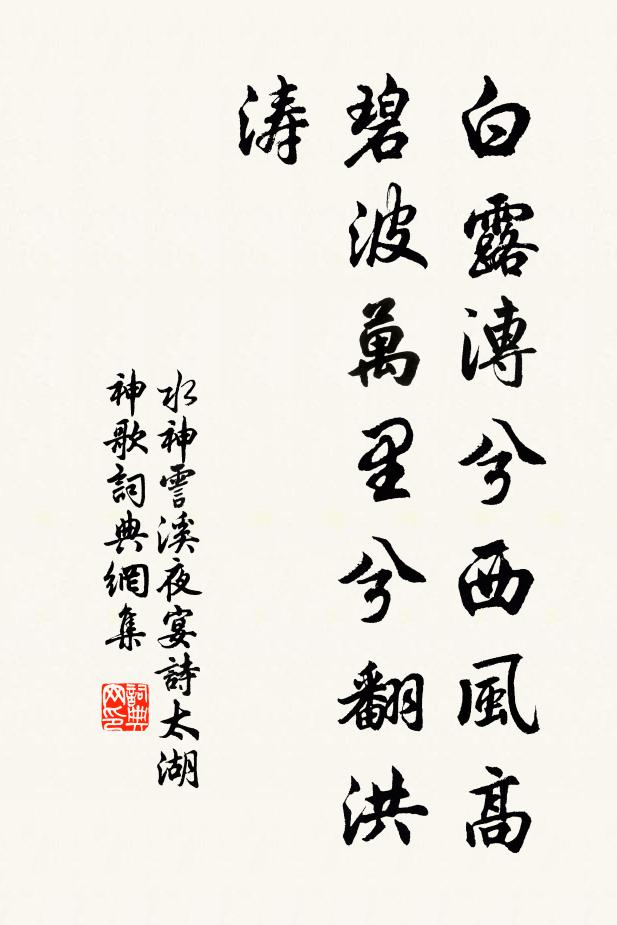 白露漙兮西風高
碧波萬里兮翻洪
涛
水神雪溪夜宴詩太湖
神歌詞典網集
詞典
网印